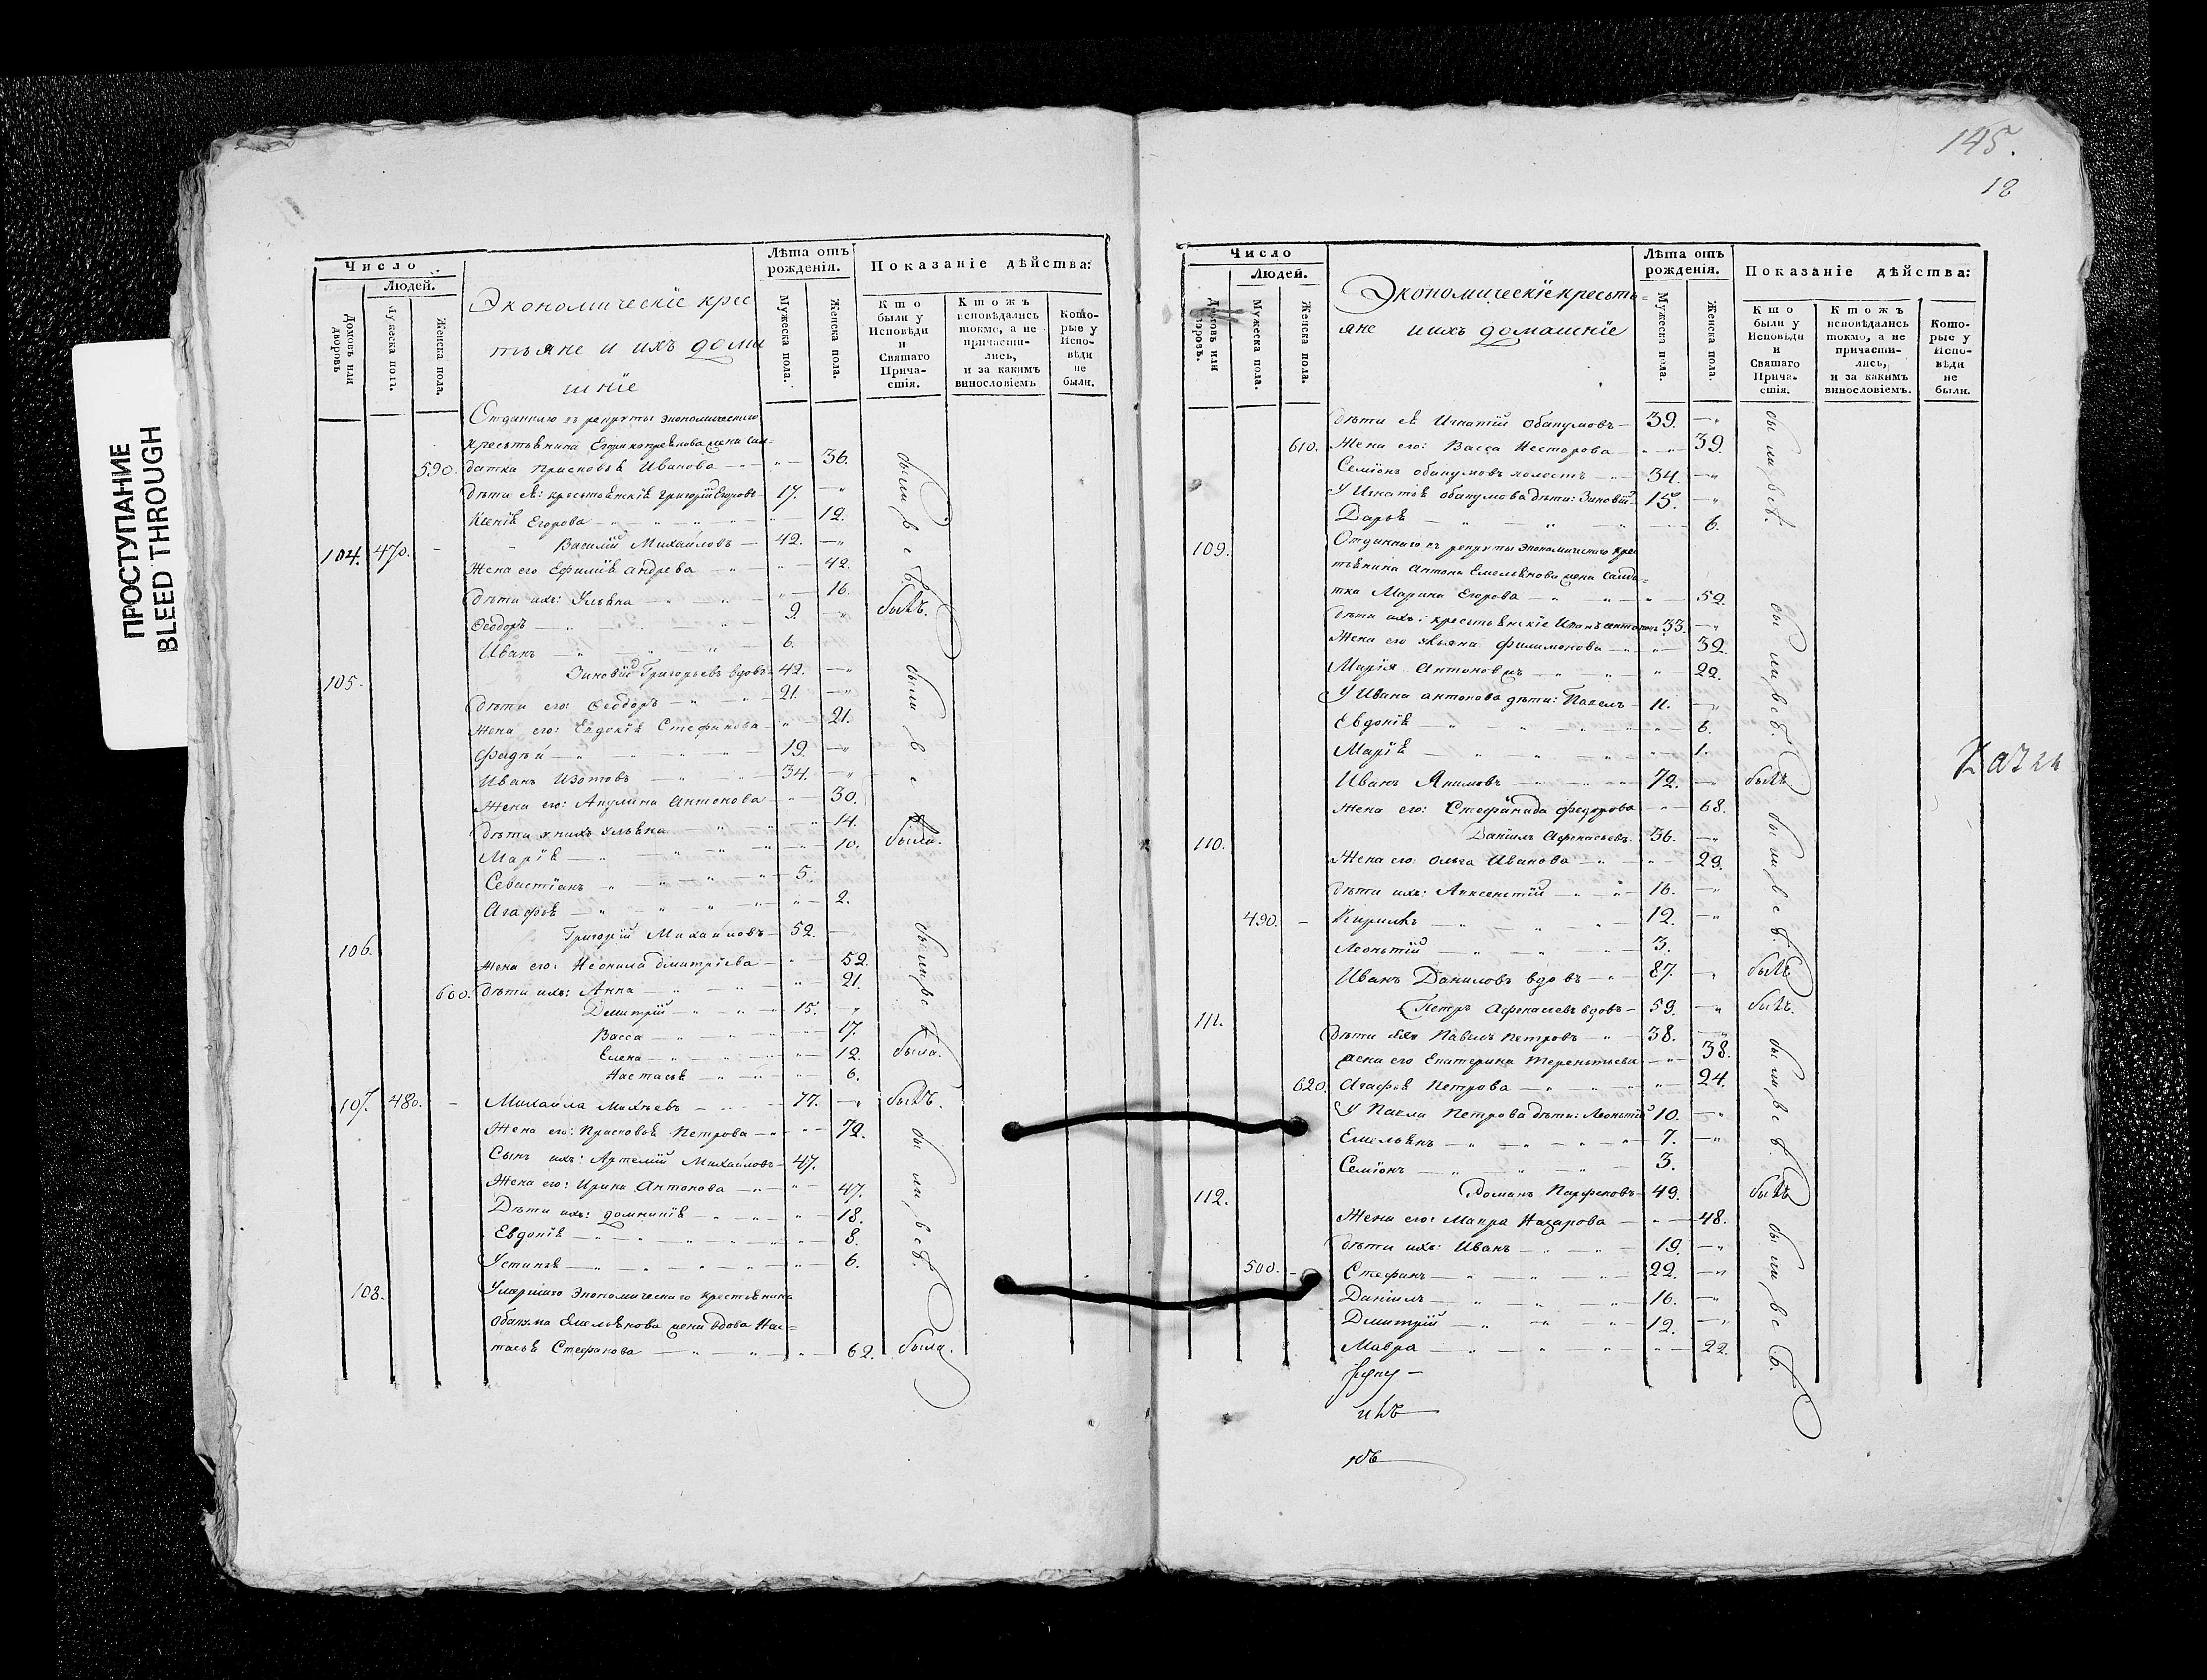 ПРОСТУПАНИЕ
BLEED THROUGH
Число
Людей.
Домовъ или дворовъ
Мужеска пола.
Женска пола.
Экономическїе крес
тьяне и ихъ дома
шнїе
Лѣта отъ рожденїя.
Мужеска пола.
Женска пола.
Показанїе дѣйства:
Кто были у Исповѣди и Святаго Причастїя.
Ктожъ исповѣдались токмо, а не причастились, и за какимъ винословїемъ
Которые у Исповѣди не были.
Отданнаго въ рекруты экономическаго
крестьянина Егора жена сал=
590. датка Прасковья Иванова 36.
дѣти ея: крестьянскїя Григорїй Егоровъ 17.
Ксенїя Егорова 12.
были всѣ
104. 470. Василїй Михайловъ 42.
Жена его Ефимїя Андрева 42.
Дѣти ихъ: Ульяна 16.
Ѳеодоръ 9. былъ.
Иванъ 6.
105. Зиновїй Григорьевъ вдовъ 42.
дѣти его: Ѳеодоръ 21.
Жена его: Евдокїя Стефанова 21.
Фадѣй 19.
Иванъ Изотовъ 34.
были всѣ
Жена его: Акулина Антонова 30.
Дѣти у нихъ Ульяна 14.
Марїя 10. была.
Севастїанъ 5.
Агафья 2.
106. Григорїй Михайловъ 52.
Жена его: Неонила Дмитрїева 52.
600. Дѣти ихъ: Анна 21.
Дмитрїй 15.
Васса 17.
были всѣ
Елена 12. была.
Настасья 6.
107. 480. Михайла Михѣевъ 77. былъ.
Жена его: Прасковья Петрова 72.
Сынъ ихъ: Артемїй Михайловъ 47.
Жена его: Ирина Антонова 47.
Дѣти ихъ: Домникїя 18.
Евдокїя 8.
Устинья 6.
были всѣ.
108. Умершаго Экономическаго крестьянина
Обакума Емельянова жена вдова Нас=
тасья Стефанова 62. была.
145.
12
Число
Людей.
Домовъ или дворовъ.
Мужеска пола.
Женска пола.
Экономическїе крестья=
яне и ихъ домашнїе
Лѣта отъ рожденїя.
Мужеска пола.
Женска пола.
Показанїе дѣйства:
Кто были у Исповѣди и Святаго Причастїя.
Ктожъ исповѣдались токмо, а не причастились, и за какимъ винословїемъ.
Которые у Исповѣди не были.
дѣти ея Игнатїй Обакумовъ 39.
610. Жена его: Васса Несторова 39.
Семїонъ Обакумовъ холостъ 34.
У Игнатья Обакумова дѣти: Зиновїй 15.
Дарья 6.
были всѣ.
109. Отданнаго въ рекруты Экономическаго крес
тьянина Антона Емельянова жена салда=
тка Марина Егорова 52.
Дѣти ихъ: крестьянскїе Иванъ Антоновъ 33.
Жена его Филимонова 32.
Марїя 22.
У Ивана Антонова дѣти: Павелъ 11.
Евдокїя 6.
Марїя 1.
были всѣ.
Иванъ Якимовъ 72. былъ
Жена его: Стефанида Федорова 68.
110. Данїилъ Афонасьевъ 36.
Жена его: Ольга Иванова 29.
дѣти ихъ: Авксентїй 16.
490. Кирилъ 12.
Леонтїй 3.
были всѣ.
Иванъ Даниловъ вдовъ 87. былъ
111. Петръ Афонасьевъ вдовъ 59. былъ.
Дѣти Павелъ Петровъ 38.
жена его Екатерина Терентьева 38.
620. Агафья Петрова 24.
У Павла Петрова дѣти: Леонтїй 10.
Емельянъ 7.
Семїонъ 3.
были всѣ.
112. Романъ Парфеновъ 49. былъ
Жена его: Мавра Назарова 48.
дѣти ихъ: Иванъ 19.
500. Стефанъ 22.
Данїилъ 16.
Дмитрїй 12.
Мавра 22.
были всѣ.